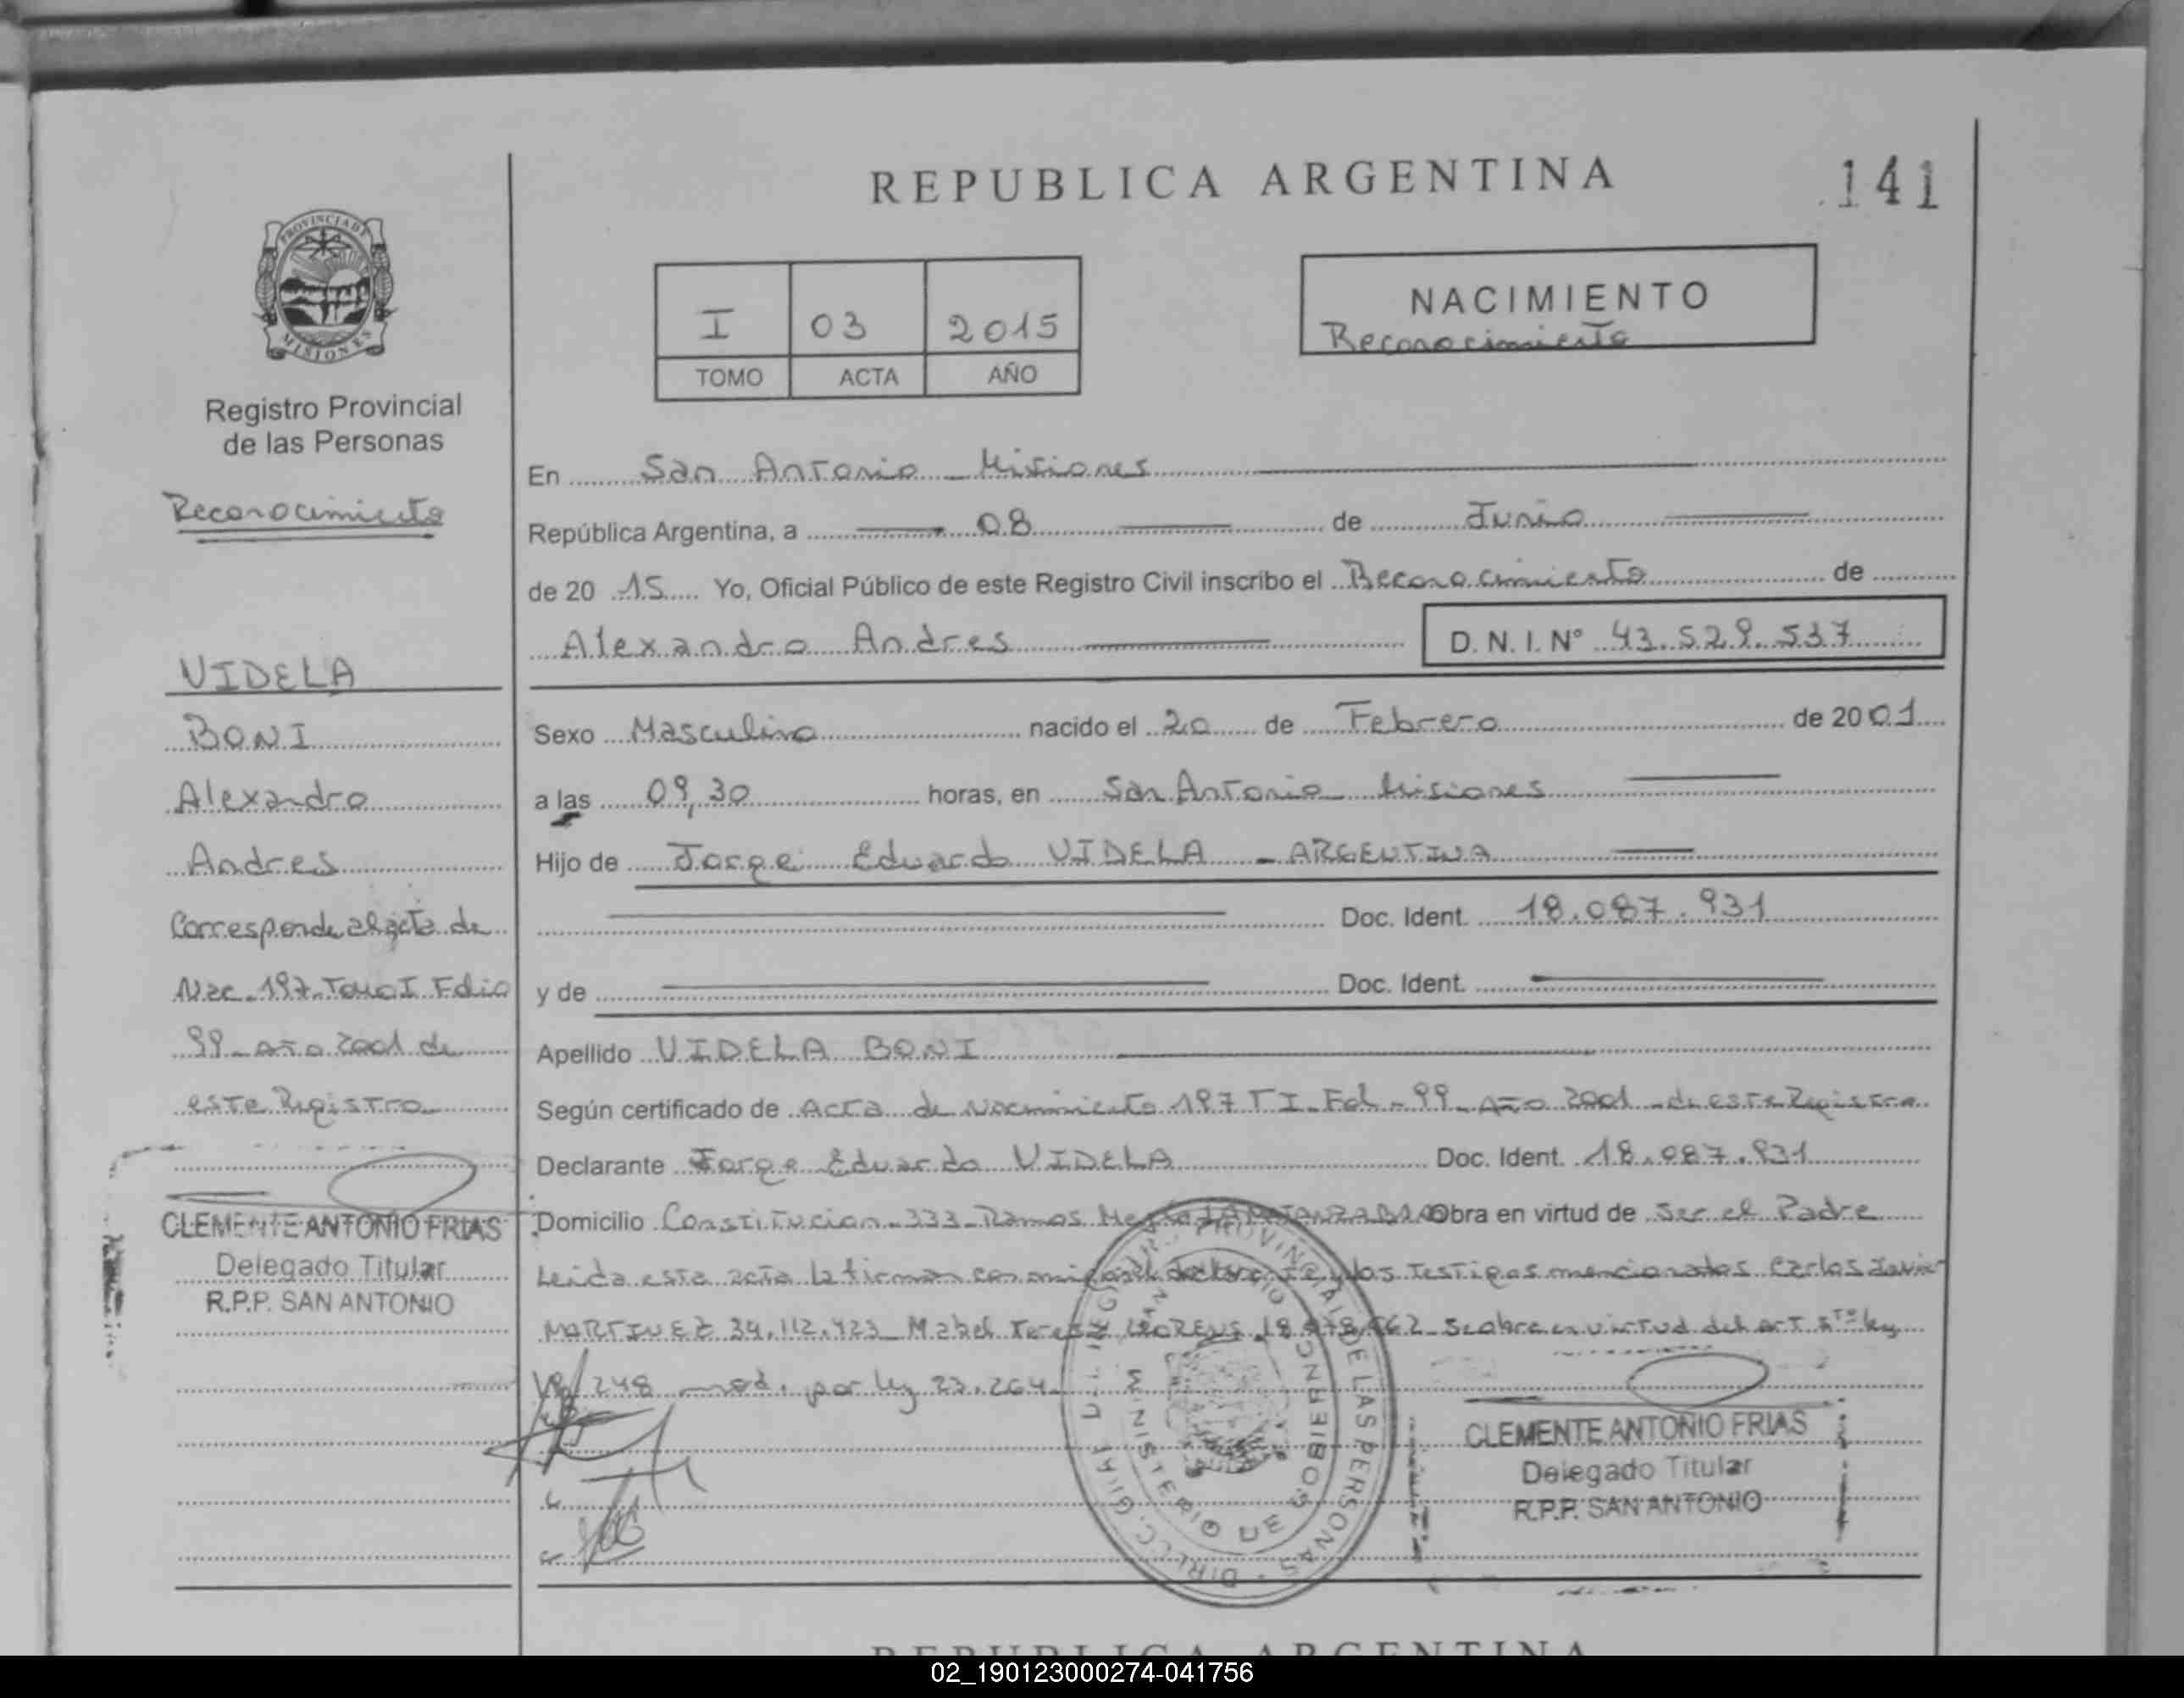 REPUBLICA ARGENTINA
141
PROVINCIA DE
MISIONES
Registro Provincial
de las Personas
Reconocimiento
I 03 2015
TOMO ACTA AÑO
NACIMIENTO
Reconocimiento
En San Antonio - Misiones
República Argentina, a 08 de Junio
de 20 15 Yo, Oficial Público de este Registro Civil inscribo el Reconocimiento de
Alexandro Andres D. N. I. N° 43.529.537
VIDELA
BONI
Alexandro
Andres
Corresponde al acta de
Nac. 197 Tomo I Folio
99 - año 2001 de
este Registro
CLEMENTE ANTONIO FRIAS
Delegado Titular
R.P.P. SAN ANTONIO
Sexo Masculino nacido el 20 de Febrero de 2001
a las 09,30 horas, en San Antonio Misiones
Hijo de Jorge Eduardo VIDELA - ARGENTINA
Doc. Ident. 18.087.931
y de Doc. Ident.
Apellido VIDELA BONI
Según certificado de Acta de Nacimiento 197 T I. Fol - 99 - Año 2001 - de este Registro
Declarante Jorge Eduardo VIDELA Doc. Ident. 18.087.931
Domicilio Constitucion - 333 - Ramos Mejia LA MATANZA BS Obra en virtud de Ser el Padre
Leida esta acta la firman con migo el declarante y los Testigos mencionados Carlos Javier
MARTINEZ 34.112.423 Mabel Teresa Se obra en virtud del art 5to ley
248 mod. por ley 23.264
DIRECC. GRAL. DEL REGISTRO PROVINCIAL DE LAS PERSONAS
MINISTERIO DE GOBIERNO
CLEMENTE ANTONIO FRIAS
Delegado Titular
R.P.P. SAN ANTONIO
REPUBLICA ARGENTINA
02_190123000274-041756